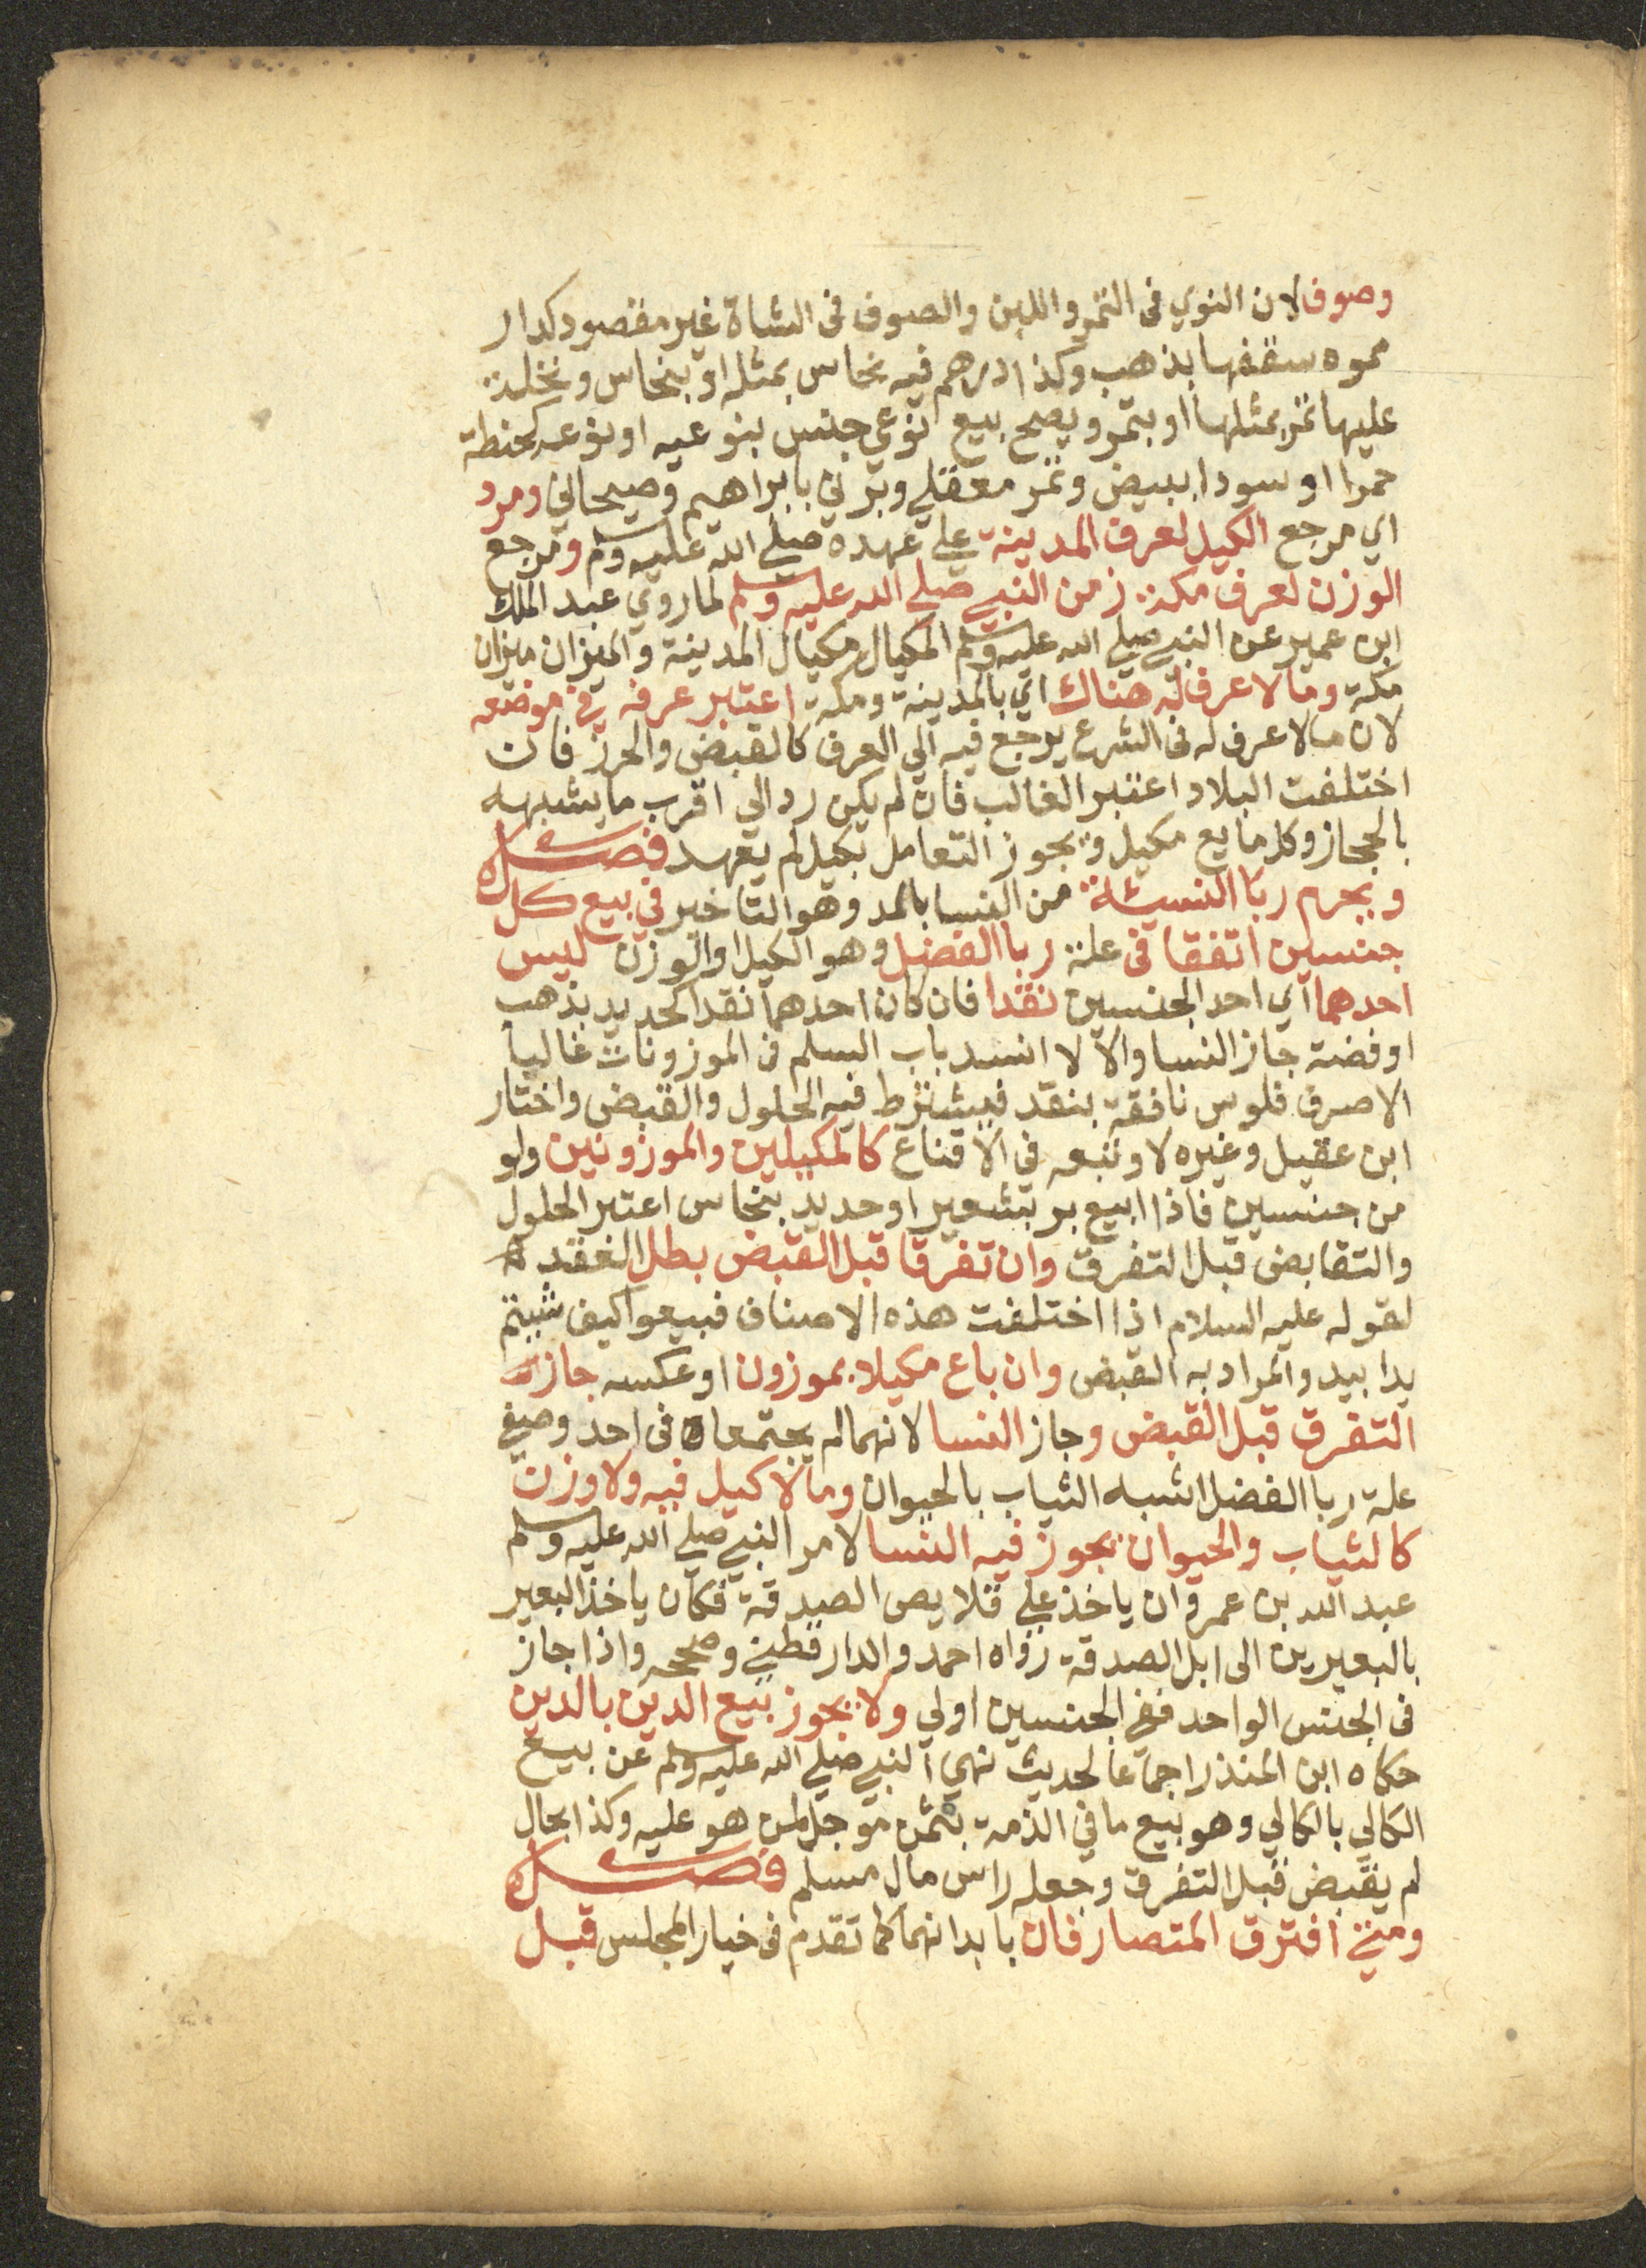 وصوف لان النوي فى التمر واللبن والصوف فى الشاة غير مقصود كدار
مموه سقفها بذهب وكذا درهم فيه نحاس بمثله او بنحاس ونخلة
عليها تمر بمثلها او بتمر ويصح بيع نوعي جنس بنوعيه او نوعه كحنطة
حمرا او سودا ببيض وتمر معقلي وبرني بابراهيم وصيحاني ومرد
اي مرجع الكيل لعرف المدينة علي عهده صلي الله عليه وسلم ومرجع
الوزن لعرف مكة زمن النبي صلي الله عليه وسلم لما روي عبد الملك
ابن عمير عن النبي صلي الله عليه وسلم المكيال مكيال المدينة والميزان ميزان
مكة وما لا عرف له هناك اي بالمدينة ومكة اعتبر عرفه في موضعه
لان ما لا عرف له فى الشرع يرجع فيه الي العرف كالقبض والحرز فان
اختلفت البلاد اعتبر الغالب فان لم يكن رد الي اقرب ما يشبهه
بالحجاز وكل مايع مكيل ويجوز التعامل بكيل لم يعهد فصل
ويحرم ربا النسيئة من النسا بالمد وهو التاخير في بيع كل
جنسين اتفقا فى علة ربا الفضل وهو الكيل او الوزن ليس
احدهما اي احد الجنسين نقدا فان كان احدهما نقدا كحديد بذهب
او فضة جاز النسا والا لا انسد باب السلم فى الموزونات غالبا
الا صرف فلوس نافقة بنقد فيشترط فيه الحلول والقبض واختار
ابن عقيل وغيره لا وتبعه في الاقناع كالمكيلين والموزونين ولو
من جنسين فاذا ابيع بر بشعير او حديد بنحاس اعتبر الحلول
والتقابض قبل التفرق وان تفرقا قبل القبض بطل العقد
لقوله عليه السلام اذا اختلفت هذه الاصناف فبيعوا كيف شيتم
يدا بيد والمراد به القبض وان باع مكيلا بموزون او عكسه جاز
التفرق قبل القبض وجاز النسا لانهما لم يجتمعا فى احد وصفي
علة ربا الفضل اشبه الثياب بالحيوان وما لا كيل فيه ولا وزن
كالثياب والحيوان يجوز فيه النسا لامر النبي صلي الله عليه وسلم
عبد الله بن عمرو ان ياخذ علي قلايص الصدقة فكان ياخذ البعير
بالبعيرين الى ابل الصدقة رواه احمد والدار قطني وصححه واذا جاز
فى الجنس الواحد ففي الجنسين اولي ولا يجوز بيع الدين بالدين
حكاه ابن المنذر اجماعا لحديث نهي النبي صلي الله عليه وسلم عن بيع
الكالي بالكالي وهو بيع ما في الذمة بثمن موجل لمن هو عليه وكذا بحال
لم يقبض قبل التفرق وجعله راس مال مسلم فصل
ومتي افترق المتصارفان بابدانهما كما تقدم فى خيار المجلس قبل